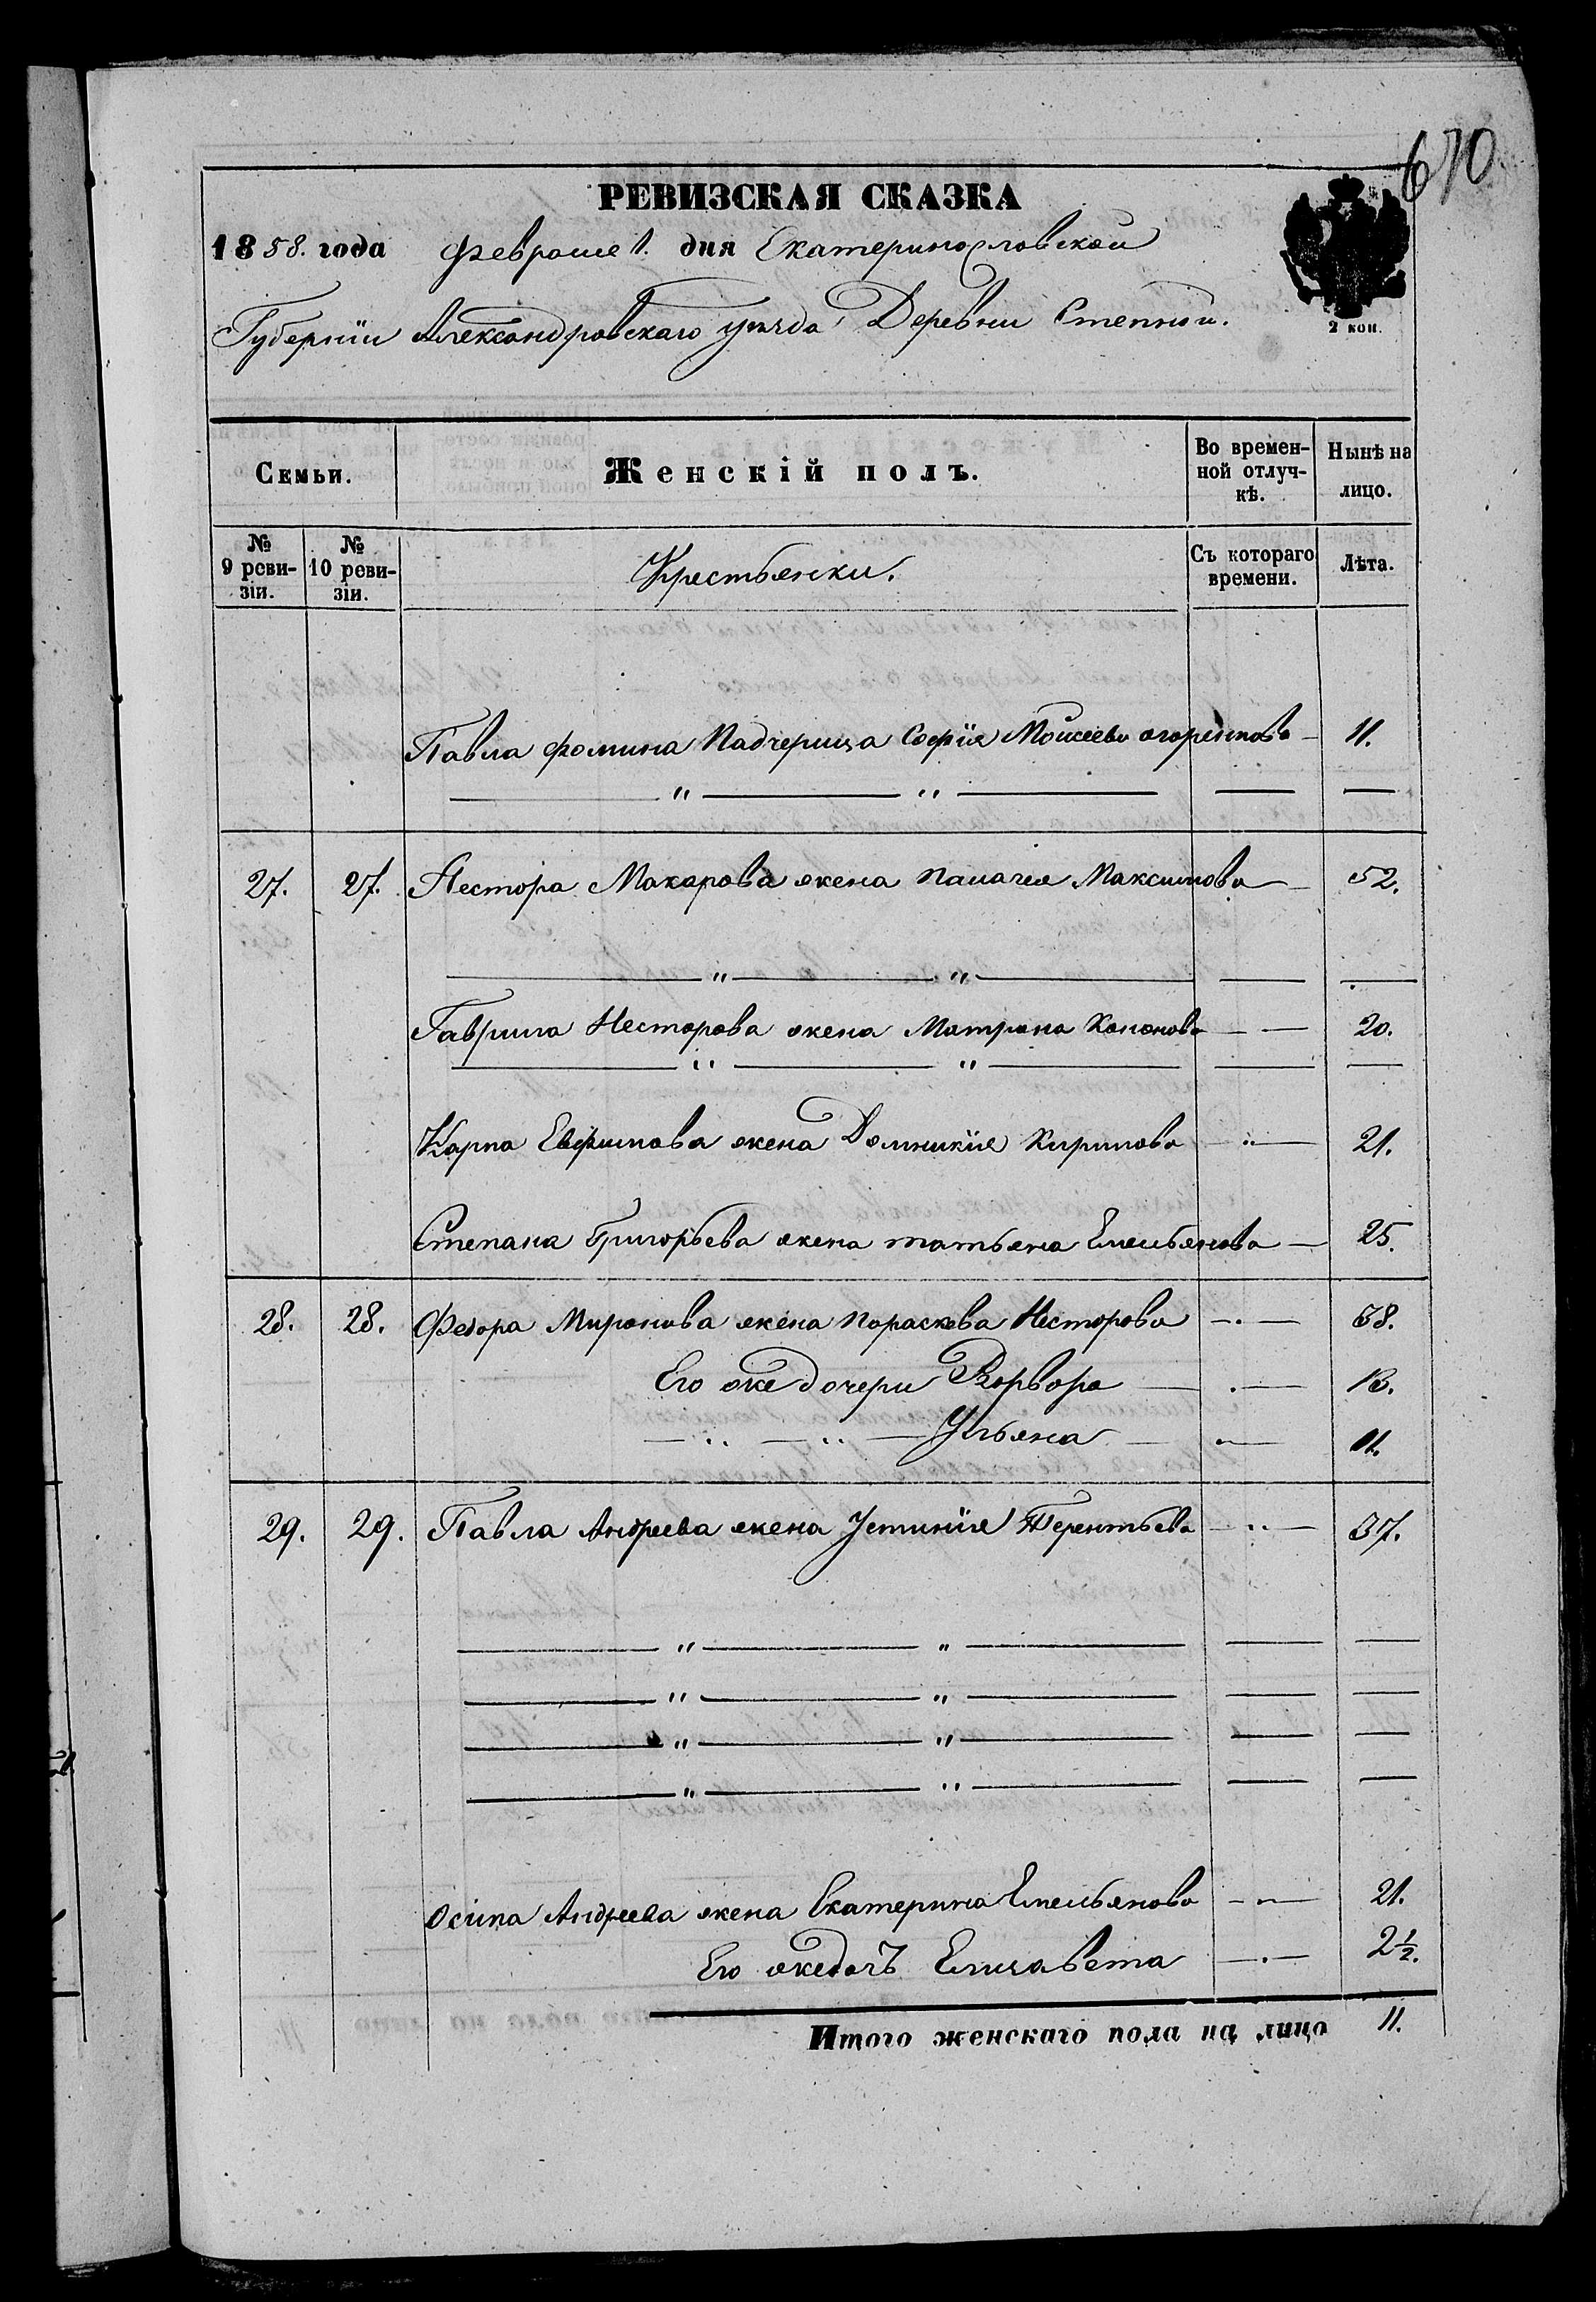 670
РЕВИЗСКАЯ СКАЗКА
1858. года февраля 1. дня Екатеринославской
Губернiи Александровскаго уѣзда Деревни Степной.
2 коп.
Семьи.
Женскiй полъ.
Во времен-
ной отлуч-
кѣ.
Нынѣ на
лицо.
№
9 реви-
зiи.
№
10 реви-
зiи.
Крестьянки.
Съ котораго
времени.
Лѣта.
Павла Фомина Падчерица Софiя Моисеева — 11.
27. 27. Нестора Макарова жена Палагея Максимова — 52.
Гаврила Несторова жена Матрона Кононова — 20.
Карпа Евфимова жена Домникiя Кирилова — 21.
Степана Григорьева жена татьяна Емельянова — 25.
28. 28. Федора Миронова жена Параскева Несторова — 38.
Его же дочери Варвара — 13.
— " — " — Ульяна — 11.
29. 29. Павла Андреева жена Устинiя Терентьева — 37.
Осипа Андреева жена Екатерина Емельянова — 21.
Его же дочь Елизавета — 2 1/2.
Итого женскаго пола на лицо 11.